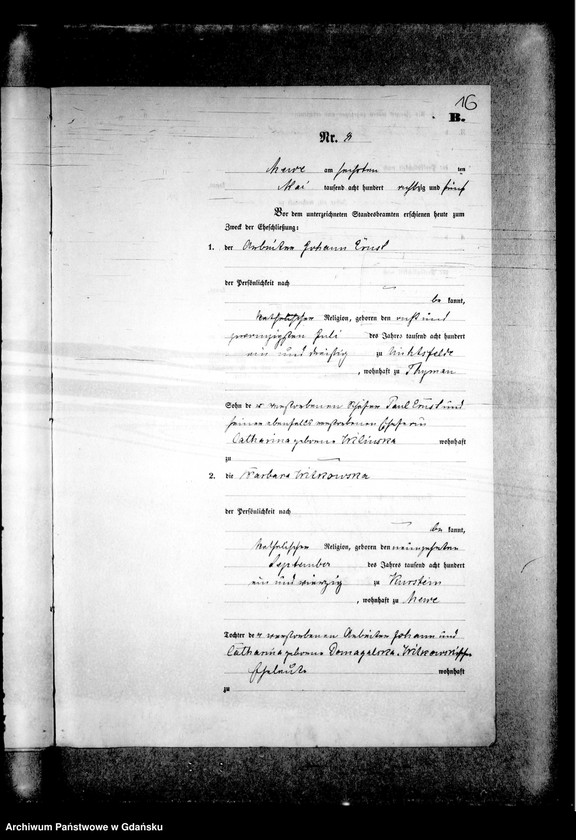 16
B.
Nr. 9
Mewe am sechsten ten
Mai tausend acht hundert siebzig und fünf
Vor dem unterzeichneten Standesbeamten erschienen heute zum
Zweck der Eheschließung:
1. der Arbeiter Johann Ernst
der Persönlichkeit nach
be kannt,
katholischer Religion, geboren den acht und
zwanzigsten Juli des Jahres tausend acht hundert
ein und dreißig zu Lichtfelde
, wohnhaft zu Thymau
Sohn der verstorbenen Schäfer Paul Ernst und
seiner ebenfalls verstorbenen Ehefrau
Catharina geborene Wilinska wohnhaft
zu
2. die Barbara Wilkowska
der Persönlichkeit nach
be kannt,
katholischer Religion, geboren den neunzehnten
September des Jahres tausend acht hundert
ein und vierzig zu Kurstein
, wohnhaft zu Mewe
Tochter der verstorbenen Arbeiter Johann und
Catharina geborene Domagalska Wilkowskischen
Eheleute wohnhaft
zu
Archiwum Państwowe w Gdańsku